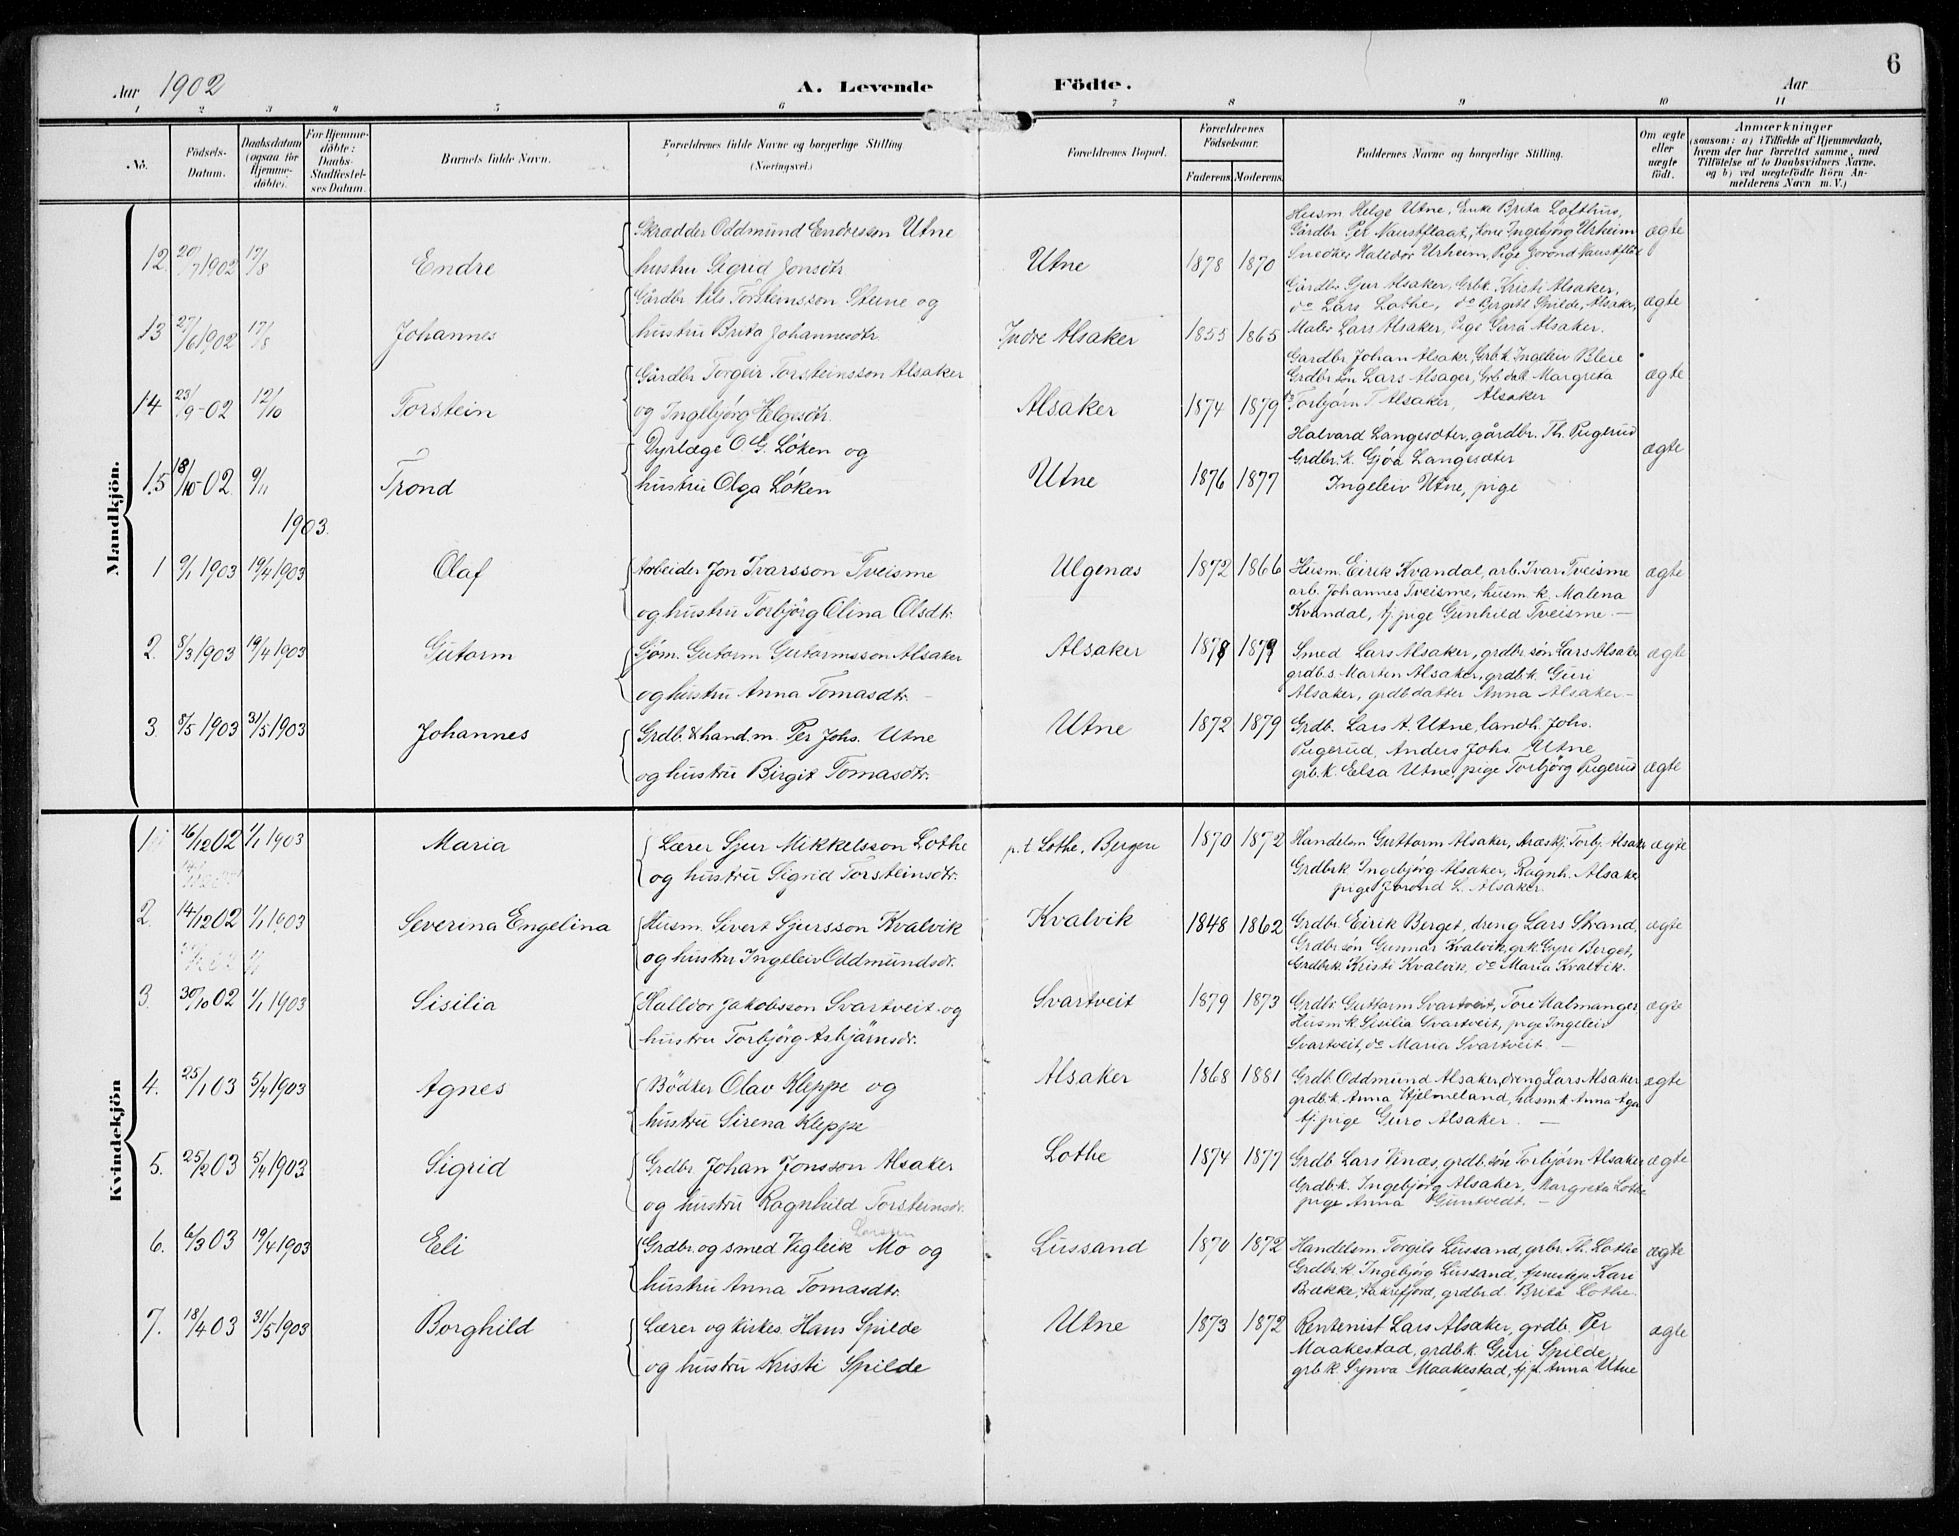 6
Aar 1902 A. Levende Födte. Aar
1 2 3 4 5 6 7 8 9 10 11
No. Födsels-Datum. Daabsdatum (ogsaa for Hjemmedöbte). For Hjemmedöbte: Daabs-Stadfæstelses Datum. Barnets fulde Navn. Forældrenes fulde Navne og borgerlige Stilling (Næringsvei.) Forældrenes Bopæl. Forældrenes Födselsaar. Faderens Moderens Faddernes Navne og borgerlige Stilling. Om ægte eller uægte födt. Anmærkninger (saasom: a) i Tilfælde af Hjemmedaab, hvem der har forrettet samme, med Tilföielse af to Daabsvidners Navne. og b) ved uægtefödte Börn Anmelderens Navn m. V.)
Mandkjön.
12 20/7 1902 17/8 Endre Skrædder Oddmund Endresson Utne
hustru Sigrid Jonsdtr Utne 1878 1870 Husm Helge Utne, Enke Brita Lofthus,
Gårdbr. Per Naustflaat, kone Ingebjørg Urheim
Snedker Haldor Urheim, Pige Jorond Naustflåt ægte
13 27/6 1902 17/8 Johannes Gårdbr Nils Torsteinsson Steine og
hustru Brita Johannesdtr. Indre Alsaker 1855 1865 Gårdbr. Gur Alsaker, Grbk. Kristi Alsaker,
do Lars Lothe, do Bergitt Spilde, Alsaker,
Maler Lars Alsaker, Pige Sara Alsaker. ægte
14 23/9-02 12/10 Torstein Gårdbr Torgeir Torsteinsson Alsaker
og Ingebjørg Helgesdtr. Alsaker 1874 1879 Gardbr. Johan Alsaker, Grbk. Ingeleiv Bleie
Grdbr søn Lars Alsager, Grb datt Margreta
Torbjørn T Alsaker, Alsaker ægte
15 18/10-02 9/11 Trond Dyrlæge O. G. Løken og
hustru Olga Løken Utne 1876 1877 Halvard Langesæter, gårdbr. Th. Pugerud
Grdbr.k. Gjøa Langesæter
Ingeleiv Utne, pige ægte
1903.
1 9/1 1903 19/4 1903 Olaf Arbeider Jon Ivarsson Tveisme
og hustru Torbjörg Olina Olsdtr. Ulgenæs 1872 1866 Husm. Eirik Kvandal, arb. Ivar Tveisme
arb. Johannes Tveisme, husm. k. Malena
Kvandal, tj. pige Gunhild Tveisme. — ægte
2. 8/3 1903 19/4 1903 Gutorm Sjöm. Gutorm Gutormsson Alsaker
og hustru Anna Tomasdtr. Alsaker 1878 1879 Smed Lars Alsaker, grdbr søn Lars Alsaker
grdb.s Marten Alsaker, grdb.k. Guri
Alsaker, grdb datter Anna Alsaker — ægte
3. 8/5 1903 31/5 1903 Johannes Grdb. & hand.m. Per Johs. Utne
og hustru Birgit Tomasdtr. Utne 1872 1879 Grdb. Lars A. Utne, landh. Johs.
Pugerud, Anders Johs. Utne
grb.k. Eelsa Utne, pige Torbjörg Pugerud ægte
Kvindekjön
1 16/12 02 1/1 1903 Maria Lærer Sjur Mikkelsson Lothe
og hustru Sigrid Torsteinsdtr. p.t Lothe, Bergen 1870 1872 Handelsm Guttorm Alsaker, Torbj. Alsaker
Grdbrk Ingebjørg Alsaker, Ragnh. Alsaker
pige Jorond L. Alsaker. ægte
2. 14/12 02 1/1 1903 Severina Engelina Husm. Sivert Sjursson Kvalvik
og hustru Ingeleiv Oddmundsdr. Kvalvik 1848 1862 Grdbr. Eirik Berget, dreng Lars Strand,
Grdbr søn Gunnar Kvalvik, grk. Gyri Berget,
Grdbrk. Kristi Kvalvik, do Maria Kvalvik. ægte
3. 30/10 02 1/1 1903 Sisilia Halldor Jakobsson Svartveit og
hustru Torbjörg Asbjörnsdr. Svartveit 1879 1873 Grdbr Guttorm Svartveit, Tore Malmanger
Husm k. Sisilia Svartveit, pige Ingeleiv
Svartveit, do Maria Svartveit. — ægte
4. 25/1 03 5/4 1903 Agnes Bödker Olav Kleppe og
hustru Sirena Kleppe Alsaker 1868 1881 Grdb. Oddmund Alsaker, dreng Lars Alsaker
grdb.k. Anna Hjelmeland, husm k Anna Aga
tj. pige Guro Alsaker. — ægte
5. 25/2 03 5/4 1903 Sigrid Grdbr. Johan Jonsson Alsaker
og hustru Ragnhild Torsteinsdr. Lothe 1874 1877 Grdb. Lars Vinæs, grdb. søn Torbjörn Alsaker
Grdb.k. Ingebjörg Alsaker, Margreta Lothe
pige Anna Guntvedt. — ægte
6. 6/3 03 19/4 1903 Eli Grdbr. og smed Vigleik Larsen Mo og
hustru Anna Tomasdtr. Lussand 1870 1872 Handelsm Torgils Lussand, grbr. Th. Lothe
Grdbr.k. Ingebjörg Lussand, Kari
Brække, grdbrd Brita Lothe. ægte
7. 18/4 03 31/5 1903 Borghild Lærer og kirkes. Hans Spilde
og hustru Kristi Spilde Utne 1873 1872 Rentenist Lars Alsaker, grdb. Per
Maakestad, grdb.k. Guri Spilde,
grb.k. Synva Maakestad, tj. p. Anna Utne ægte